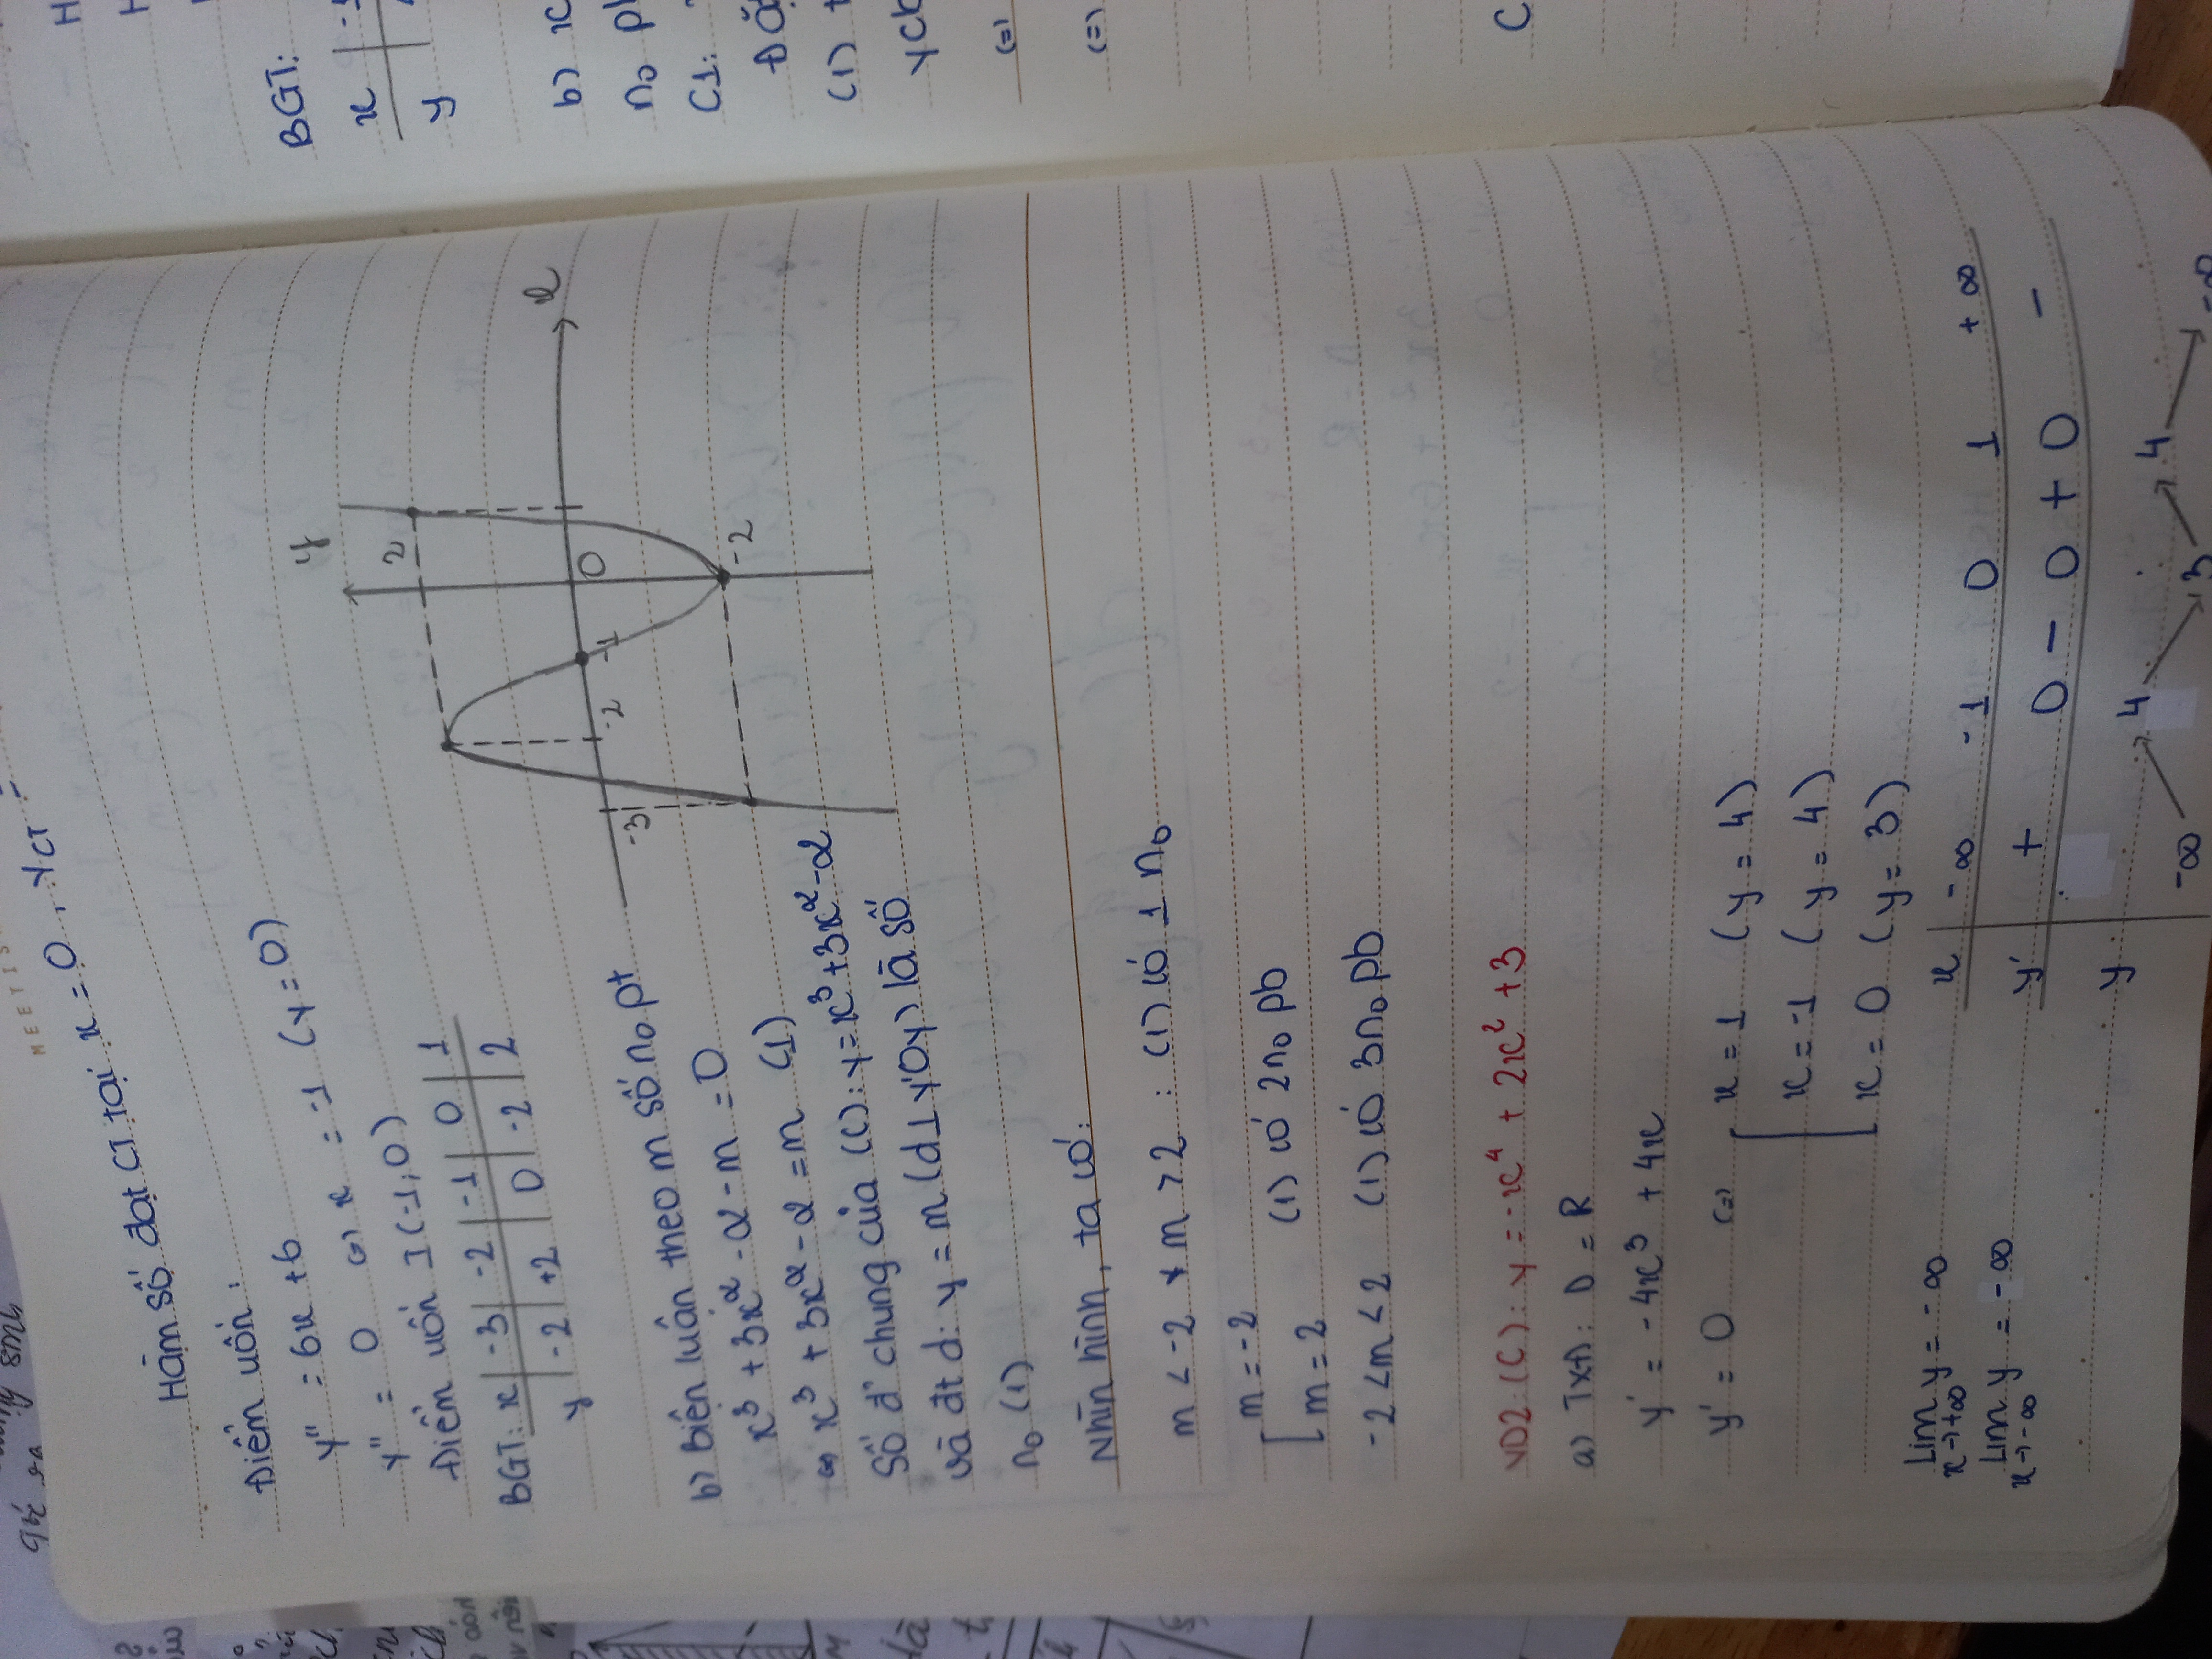 MEETIS
Hàm số đạt CT tại x = 0, yCT =
Điểm uốn:
y'' = 6x + 6
y'' = 0 (=) x = -1 (y = 0)
Điểm uốn I(-1;0)
BGT: x | -3 | -2 | -1 | 0 | 1
y | -2 | +2 | 0 | -2 | 2
y
2
x
-3 -2 -1 0
-2
b) Biện luận theo m số no pt
x³ + 3x² - 2 - m = 0
(=) x³ + 3x² - 2 = m (1)
Số đ' chung của (C): y = x³ + 3x² - 2
và đt d: y = m (d ⊥ y'Oy) là số
no (1)
Nhìn hình, ta có:
m < -2 v m > 2 : (1) có 1 no
m = -2
m = 2 (1) có 2 no pb
-2 < m < 2 (1) có 3 no pb
VD2: (C): y = -x⁴ + 2x² + 3
a) TXĐ: D = R
y' = -4x³ + 4x
y' = 0 (=) x = 1 (y = 4)
x = -1 (y = 4)
x = 0 (y = 3)
Lim y = -∞
x→+∞
Lim y = -∞
x→-∞
x | -∞ -1 0 1 +∞
y' | + 0 - 0 + 0 -
y | -∞ ↗ 4 ↘ 3 ↗ 4 ↘ -∞
BGT:
x | -1
y
b) x
no
C1:
(1)
ycb
(=)
(=)
C